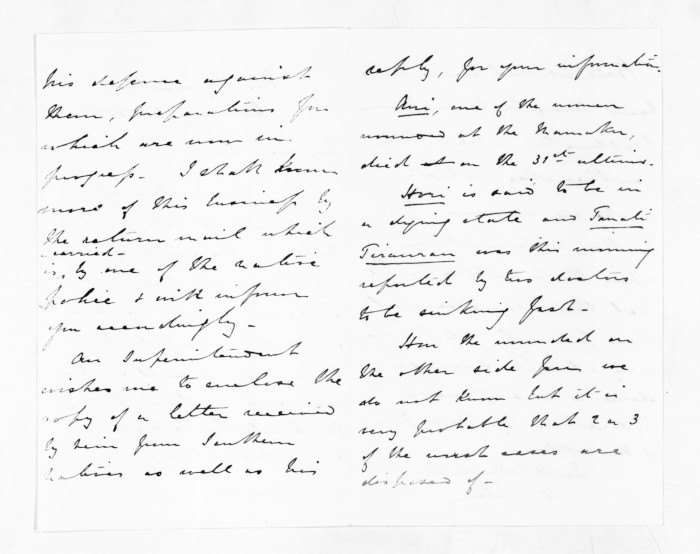 his defence against
them, preparations for
which are now in
progress - I shall know
more of this business by
the return mail which
- carried -
is, by one of the native
police & will inform
you accordingly -
Our Superintendent
wishes me to enclose the
copy of a letter received
by him from Southern
natives as well as his
reply, for your information.
Ani, one of the women
wounded at the
died at on the 31st ultimo.
Hori is said to be in
a dying state and Tamati
was this morning
reported by two doctors
to be sinking fast -
How the wounded on
the other side fare we
do not know but it is
very probable that 2 or 3
of the worst cases are
disposed of -